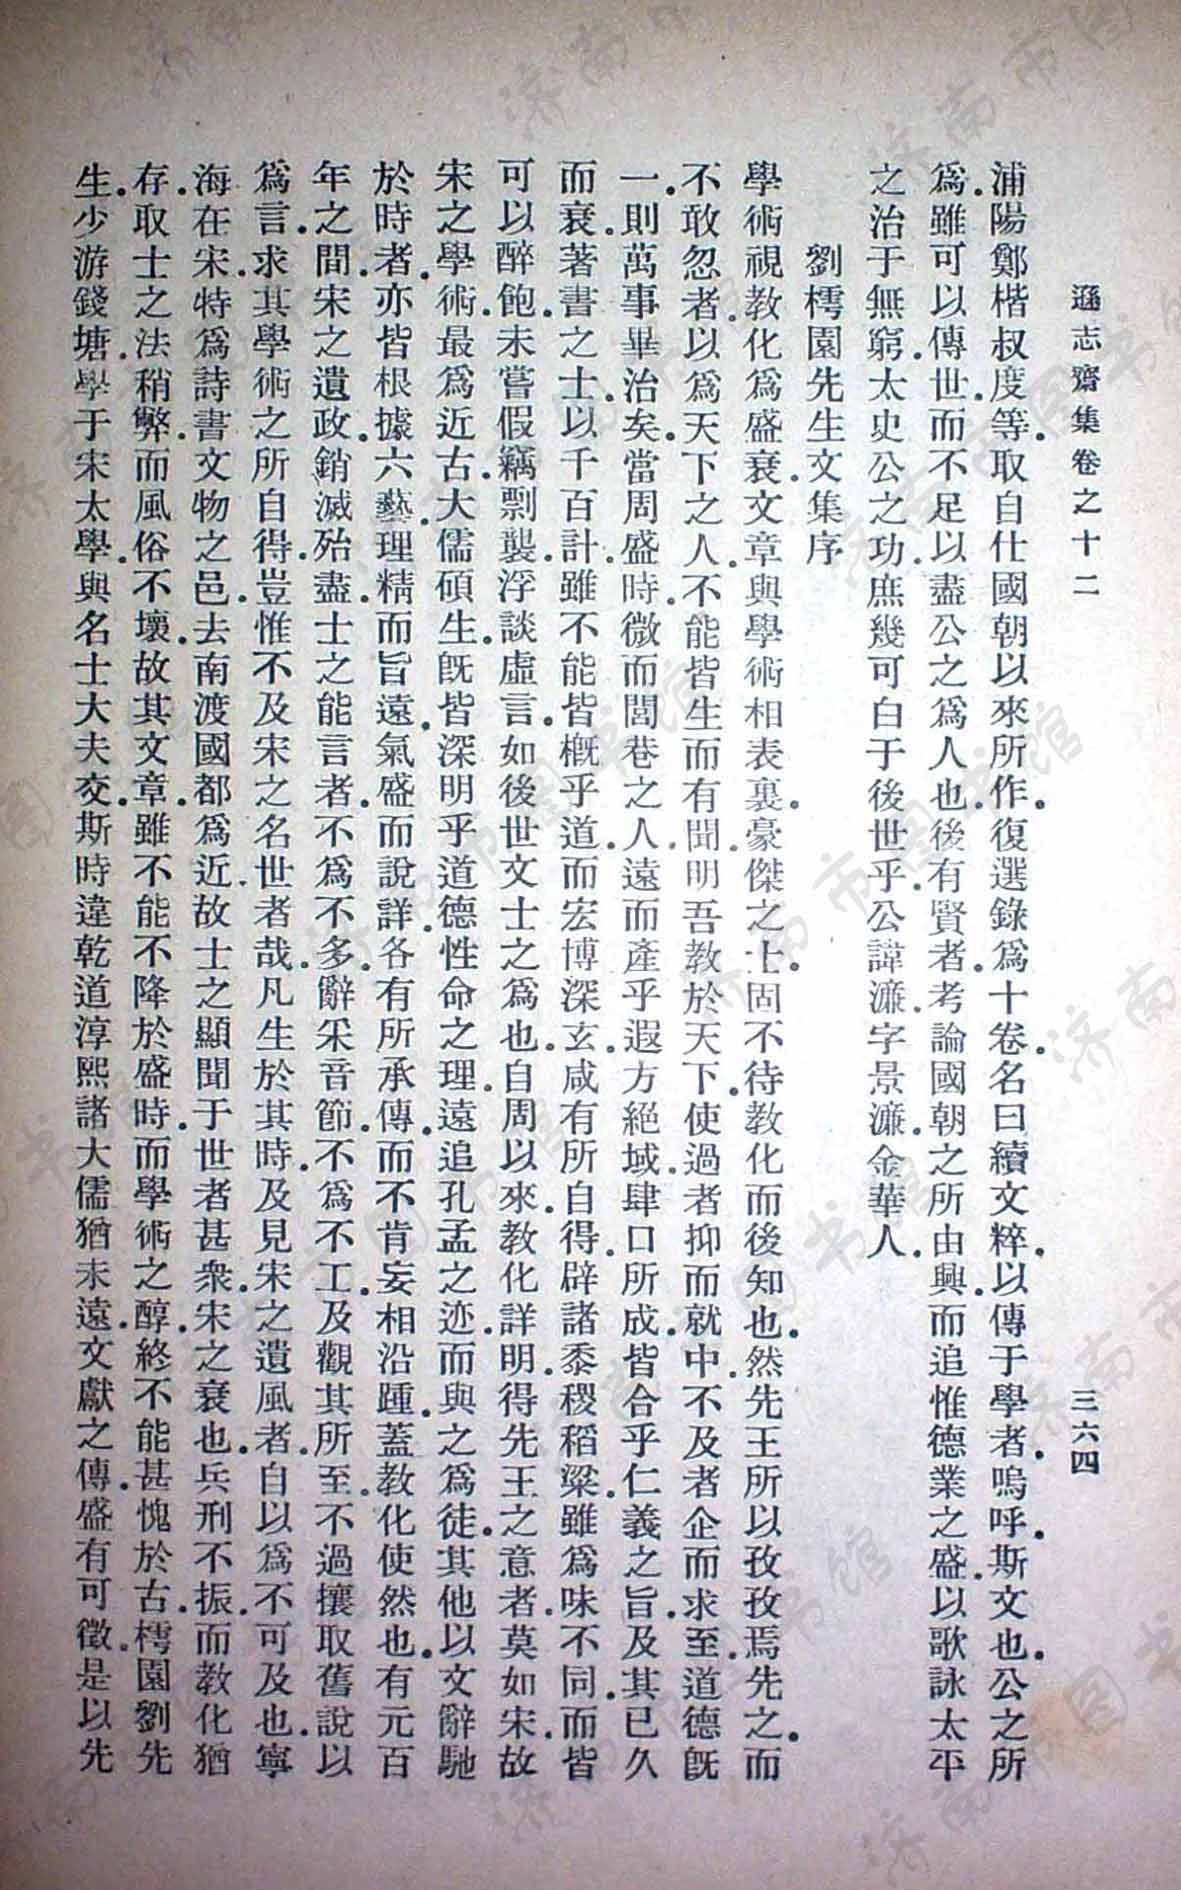 遜志齋集卷之十二 三六四
浦陽鄭楷叔度等取自仕國朝以來所作復選錄爲十卷名曰續文粹以傳于學者嗚呼斯文也公之所
爲雖可以傳世而不足以盡公之爲人也後有賢者考論國朝之所由興而追惟德業之盛以歌詠太平
之治于無窮太史公之功庶幾可白于後世乎公諱濂字景濂金華人
劉樗園先生文集序
學術視教化爲盛衰文章與學術相表裏豪傑之士固不待教化而後知也然先王所以孜孜焉先之而
不敢忽者以爲天下之人不能皆生而有聞明吾教於天下使過者抑而就中不及者企而求至道德旣
一則萬事畢治矣當周盛時微而閭巷之人遠而產乎遐方絕域肆口所成皆合乎仁義之旨及其已久
而衰著書之士以千百計雖不能皆槪乎道而宏博深玄咸有所自得辟諸黍稷稻粱雖爲味不同而皆
可以醉飽未嘗假竊剽襲浮談虛言如後世文士之爲也自周以來教化詳明得先王之意者莫如宋故
宋之學術最爲近古大儒碩生旣皆深明乎道德性命之理遠追孔孟之迹而與之爲徒其他以文辭馳
於時者亦皆根據六藝理精而旨遠氣盛而說詳各有所承傳而不肯妄相沿踵蓋教化使然也有元百
年之間宋之遺政銷滅殆盡士之能言者不爲不多辭采音節不爲不工及觀其所至不過攘取舊說以
爲言求其學術之所自得豈惟不及宋之名世者哉凡生於其時及見宋之遺風者自以爲不可及也寧
海在宋特爲詩書文物之邑去南渡國都爲近故士之顯聞于世者甚衆宋之衰也兵刑不振而教化猶
存取士之法稍弊而風俗不壞故其文章雖不能不降於盛時而學術之醇終不能甚愧於古樗園劉先
生少游錢塘學于宋太學與名士大夫交斯時違乾道淳熙諸大儒猶未遠文獻之傳盛有可徵是以先
济南市图书馆